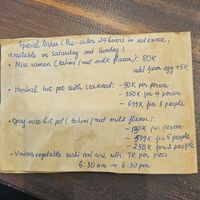 Special Dishes (Pre-order 24 hours in advance,
available on Saturday and Sunday)
• Miso ramen (tahini / nut milk flavor): 80K
add farm egg +5K
• Herbal hot pot with seaweed: - 90K per person
- 350K for 4 person
- 699K for 8 people
• Spicy miso hot pot (tahini / nut milk flavor):
- 130K per person
- 599K for 5 people
- 250K for 2 people
• Various vegetable sushi and rice with 7K per piece
6:30 am → 6:30 pm